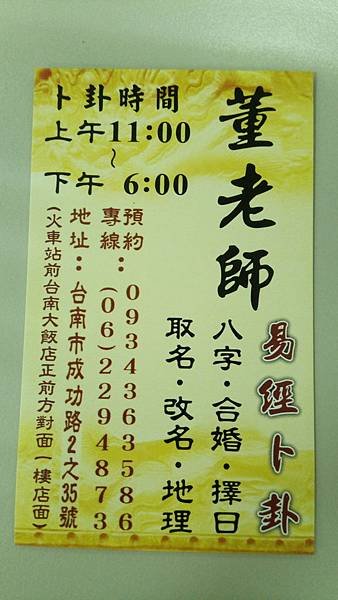 董老師
易經卜卦
八字·合婚·擇日
取名·改名·地理
卜卦時間
上午11:00
~
下午 6:00
預約專線：0934363586
(06)2294873
地址：台南市成功路2之35號
(火車站前台南大飯店正前方對面一樓店面)